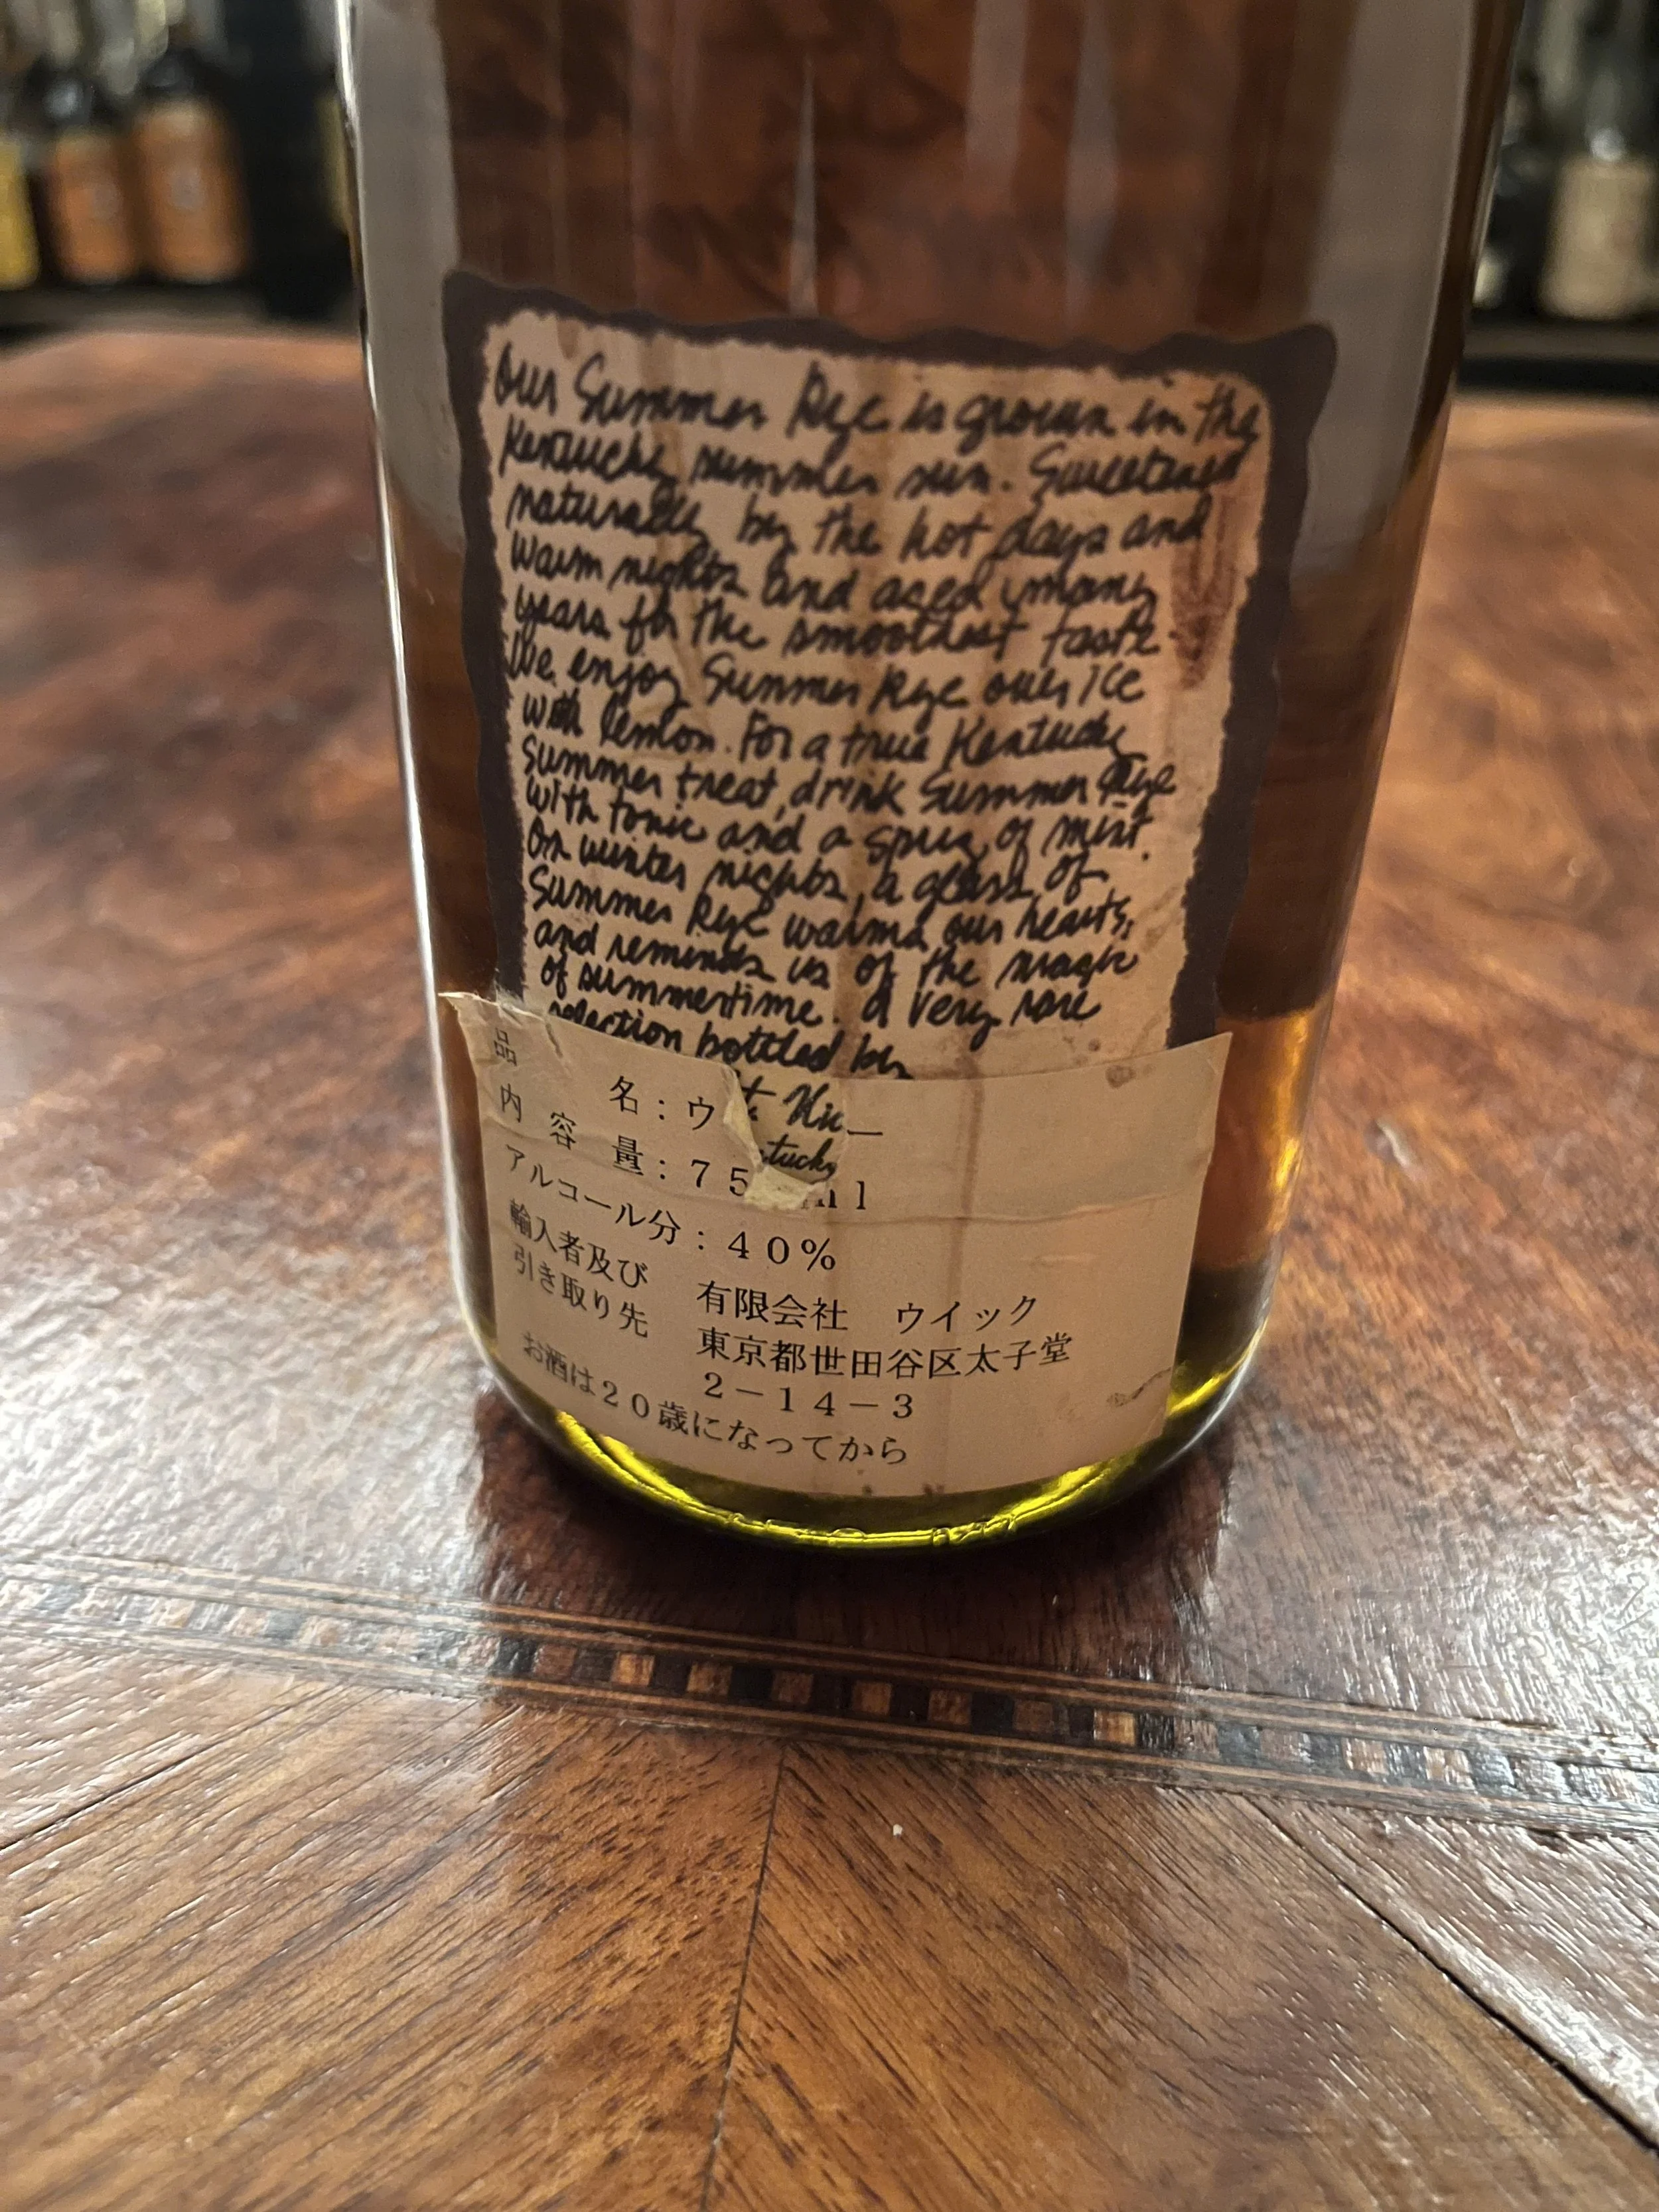 Our Summer Rye is grown in the
Kentucky summer sun. Sweetened
naturally by the hot days and
warm nights and aged many
years for the smoothest taste.
We enjoy Summer Rye over ice
with lemon. For a true Kentucky
summer treat, drink Summer Rye
with tonic and a sprig of mint.
On winter nights, a glass of
Summer Rye warms our hearts,
and reminds us of the magic
of summertime. A very rare
selection bottled by
品 名：ウ
内容量：75 ml
アルコール分：40%
輸入者及び
引き取り先
有限会社 ウイック
東京都世田谷区太子堂
2－14－3
お酒は20歳になってから